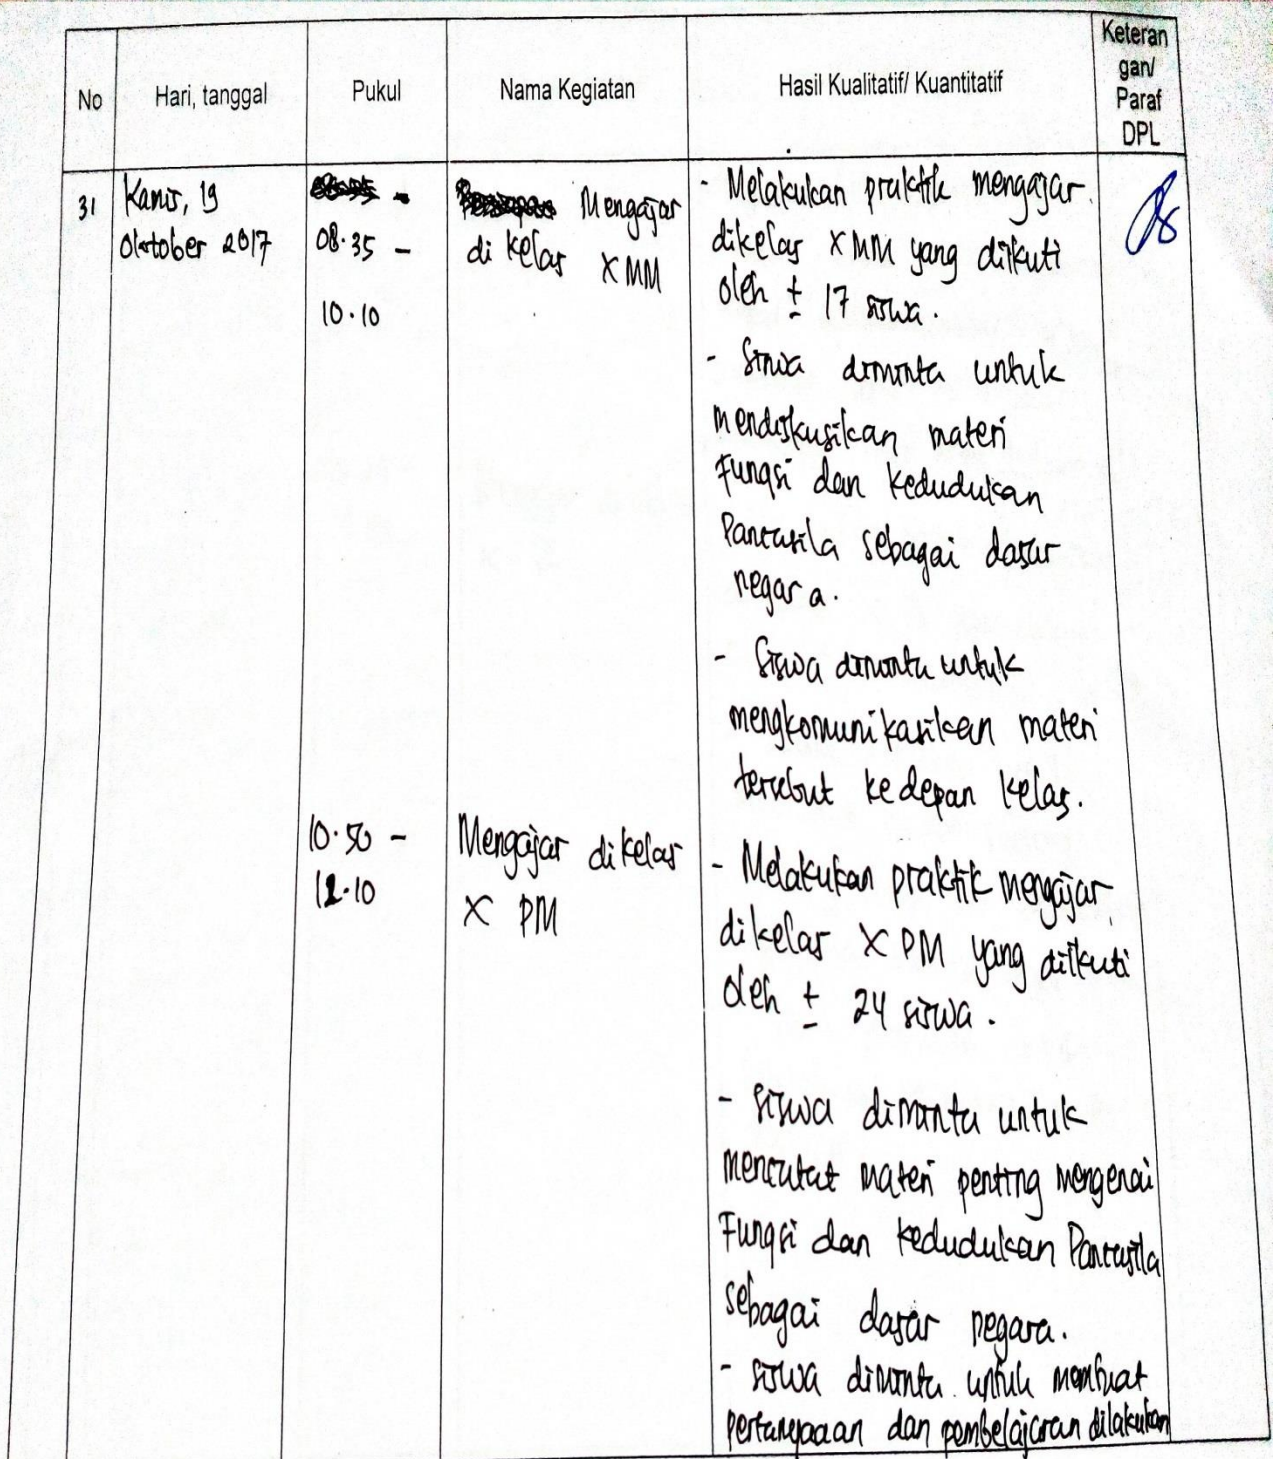 No
Hari, tanggal
Pukul
Nama Kegiatan
Hasil Kualitatif/ Kuantitatif
Keteran
gan/
Paraf
DPL
31
Kamis, 19
Oktober 2017
08.35 -
10.10
Mengajar
di kelas X MM
- Melakukan praktik mengajar
dikelas X MM yang diikuti
oleh ± 17 siswa.
- Siswa diminta untuk
mendiskusikan materi
Fungsi dan kedudukan
Pancasila sebagai dasar
negara.
- Siswa diminta untuk
mengkomunikasikan materi
tersebut kedepan kelas.
10.50 -
12.10
Mengajar dikelas
X PM
- Melakukan praktik mengajar
dikelas X PM yang diikuti
oleh ± 24 siswa.
- Siswa diminta untuk
mencatat materi penting mengenai
Fungsi dan kedudukan Pancasila
sebagai dasar negara.
- siswa diminta untuk membuat
pertanyaaan dan pembelajaran dilakukan